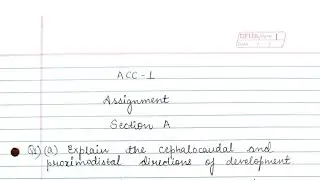 ACC-1
Assignment
Section A
Q1) (a) Explain the cephalocaudal and
proximodistal directions of development